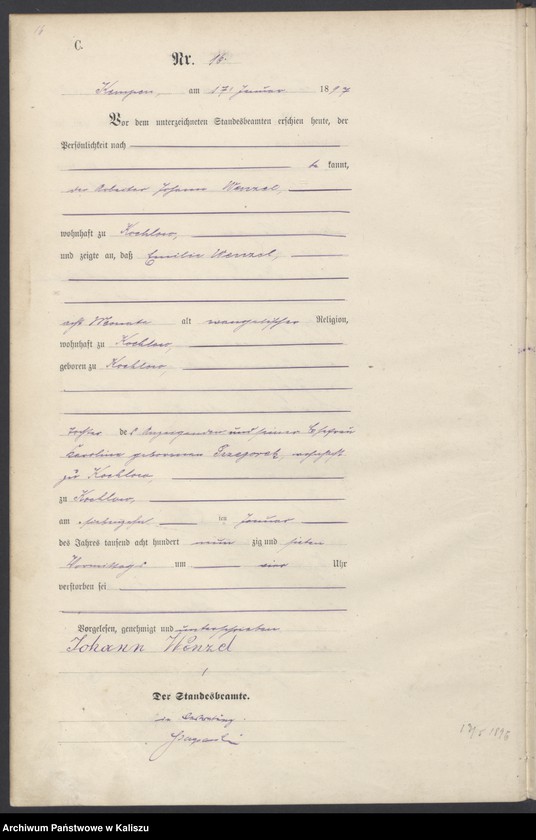 C.
Nr. 16.
Kempen, am 17 Januar 1897
Vor dem unterzeichneten Standesbeamten erschien heute, der
Persönlichkeit nach
be kannt,
der Arbeiter Johann Wenzel,
wohnhaft zu Kochlow,
und zeigte an, daß Emilie Wenzel,
acht Monate alt evangelischer Religion,
wohnhaft zu Kochlow,
geboren zu Kochlow,
Tochter des Anzeigenden und seiner Ehefrau
Caroline geborenen wohnhaft
zu Kochlow,
zu Kochlow,
am siebenzehn ten Januar
des Jahres tausend acht hundert neun zig und sieben
Vormittags um vier Uhr
verstorben sei
Vorgelesen, genehmigt und unterschrieben
Johann Wenzel
Der Standesbeamte.
in Vertretung.
Archiwum Państwowe w Kaliszu